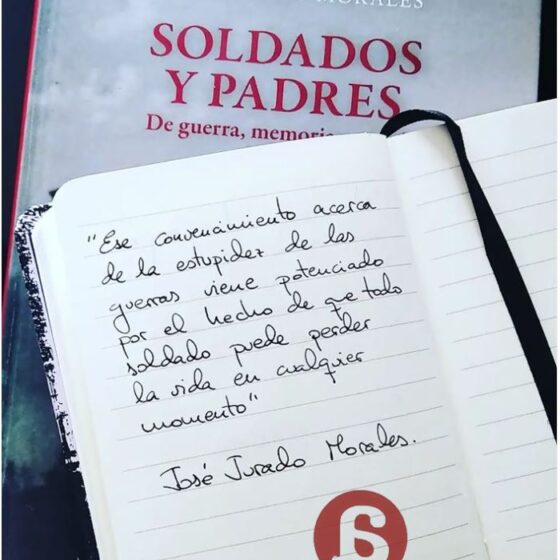 MORALES
SOLDADOS
Y PADRES
De guerra, memoria
"Ese convencimiento acerca
de la estupidez de las
guerras viene potenciado
por el hecho de que todo
soldado puede perder
la vida en cualquier
momento"
José Jurado Morales.